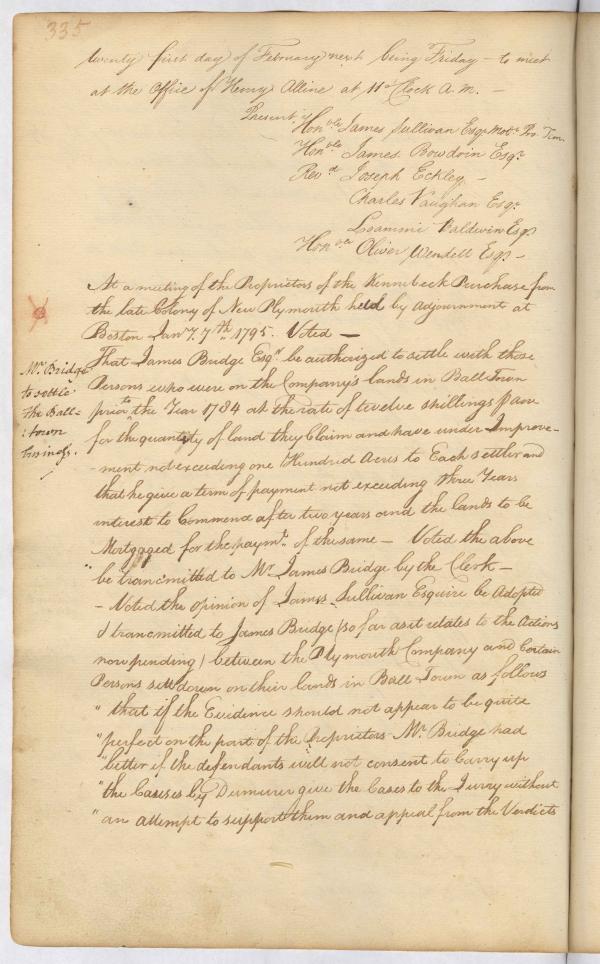 335
twenty first day of February next being Friday - to meet
at the Office of Henry Alline at 11 o'Clock A.M. -
Present
Honble James Sullivan Esqr Modr Pro. Tem.
Honble James Bowdoin Esqr
Revd Joseph Eckley -
Charles Vaughan Esqr
Loammi Baldwin Esqr
Honble Oliver Wendell Esqr -
At a meeting of the Proprietors of the Kennebeck Purchase from
the late Colony of New Plymouth held by adjournment at
Boston Jany 7th 1795. Voted -
Mr. Bridge
to settle
the Ball=
:town
business.
That James Bridge Esqr be authorized to settle with those
Persons who were on the Company's lands in Ball Town
prior to the Year 1784 at the rate of twelve shillings p acre
for the quantity of land they Claim and have under Improve-
-ment, not exceeding one Hundred Acres to Each settler and
that he give a term of payment not exceeding three Years
interest to Commend after two years and the lands to be
Mortgaged for the paymt. of the same - Voted the above
be trancmitted to Mr. James Bridge by the Clerk -
- Voted the opinion of James Sullivan Esquire be Adopted
& trancmitted to James Bridge (so far as it relates to the Actions
now pending) between the Plymouth Company and Certain
Persons sett down on their lands in Ball Town as follows
" that if the Evidence should not appear to be quite
" perfect on the part of the Proprietors Mr. Bridge had
" better if the defendants will not consent to Carry up
" the Causes by Dumurer give the Cases to the Jurry without
" an attempt to support them and appeal from the Verdicts